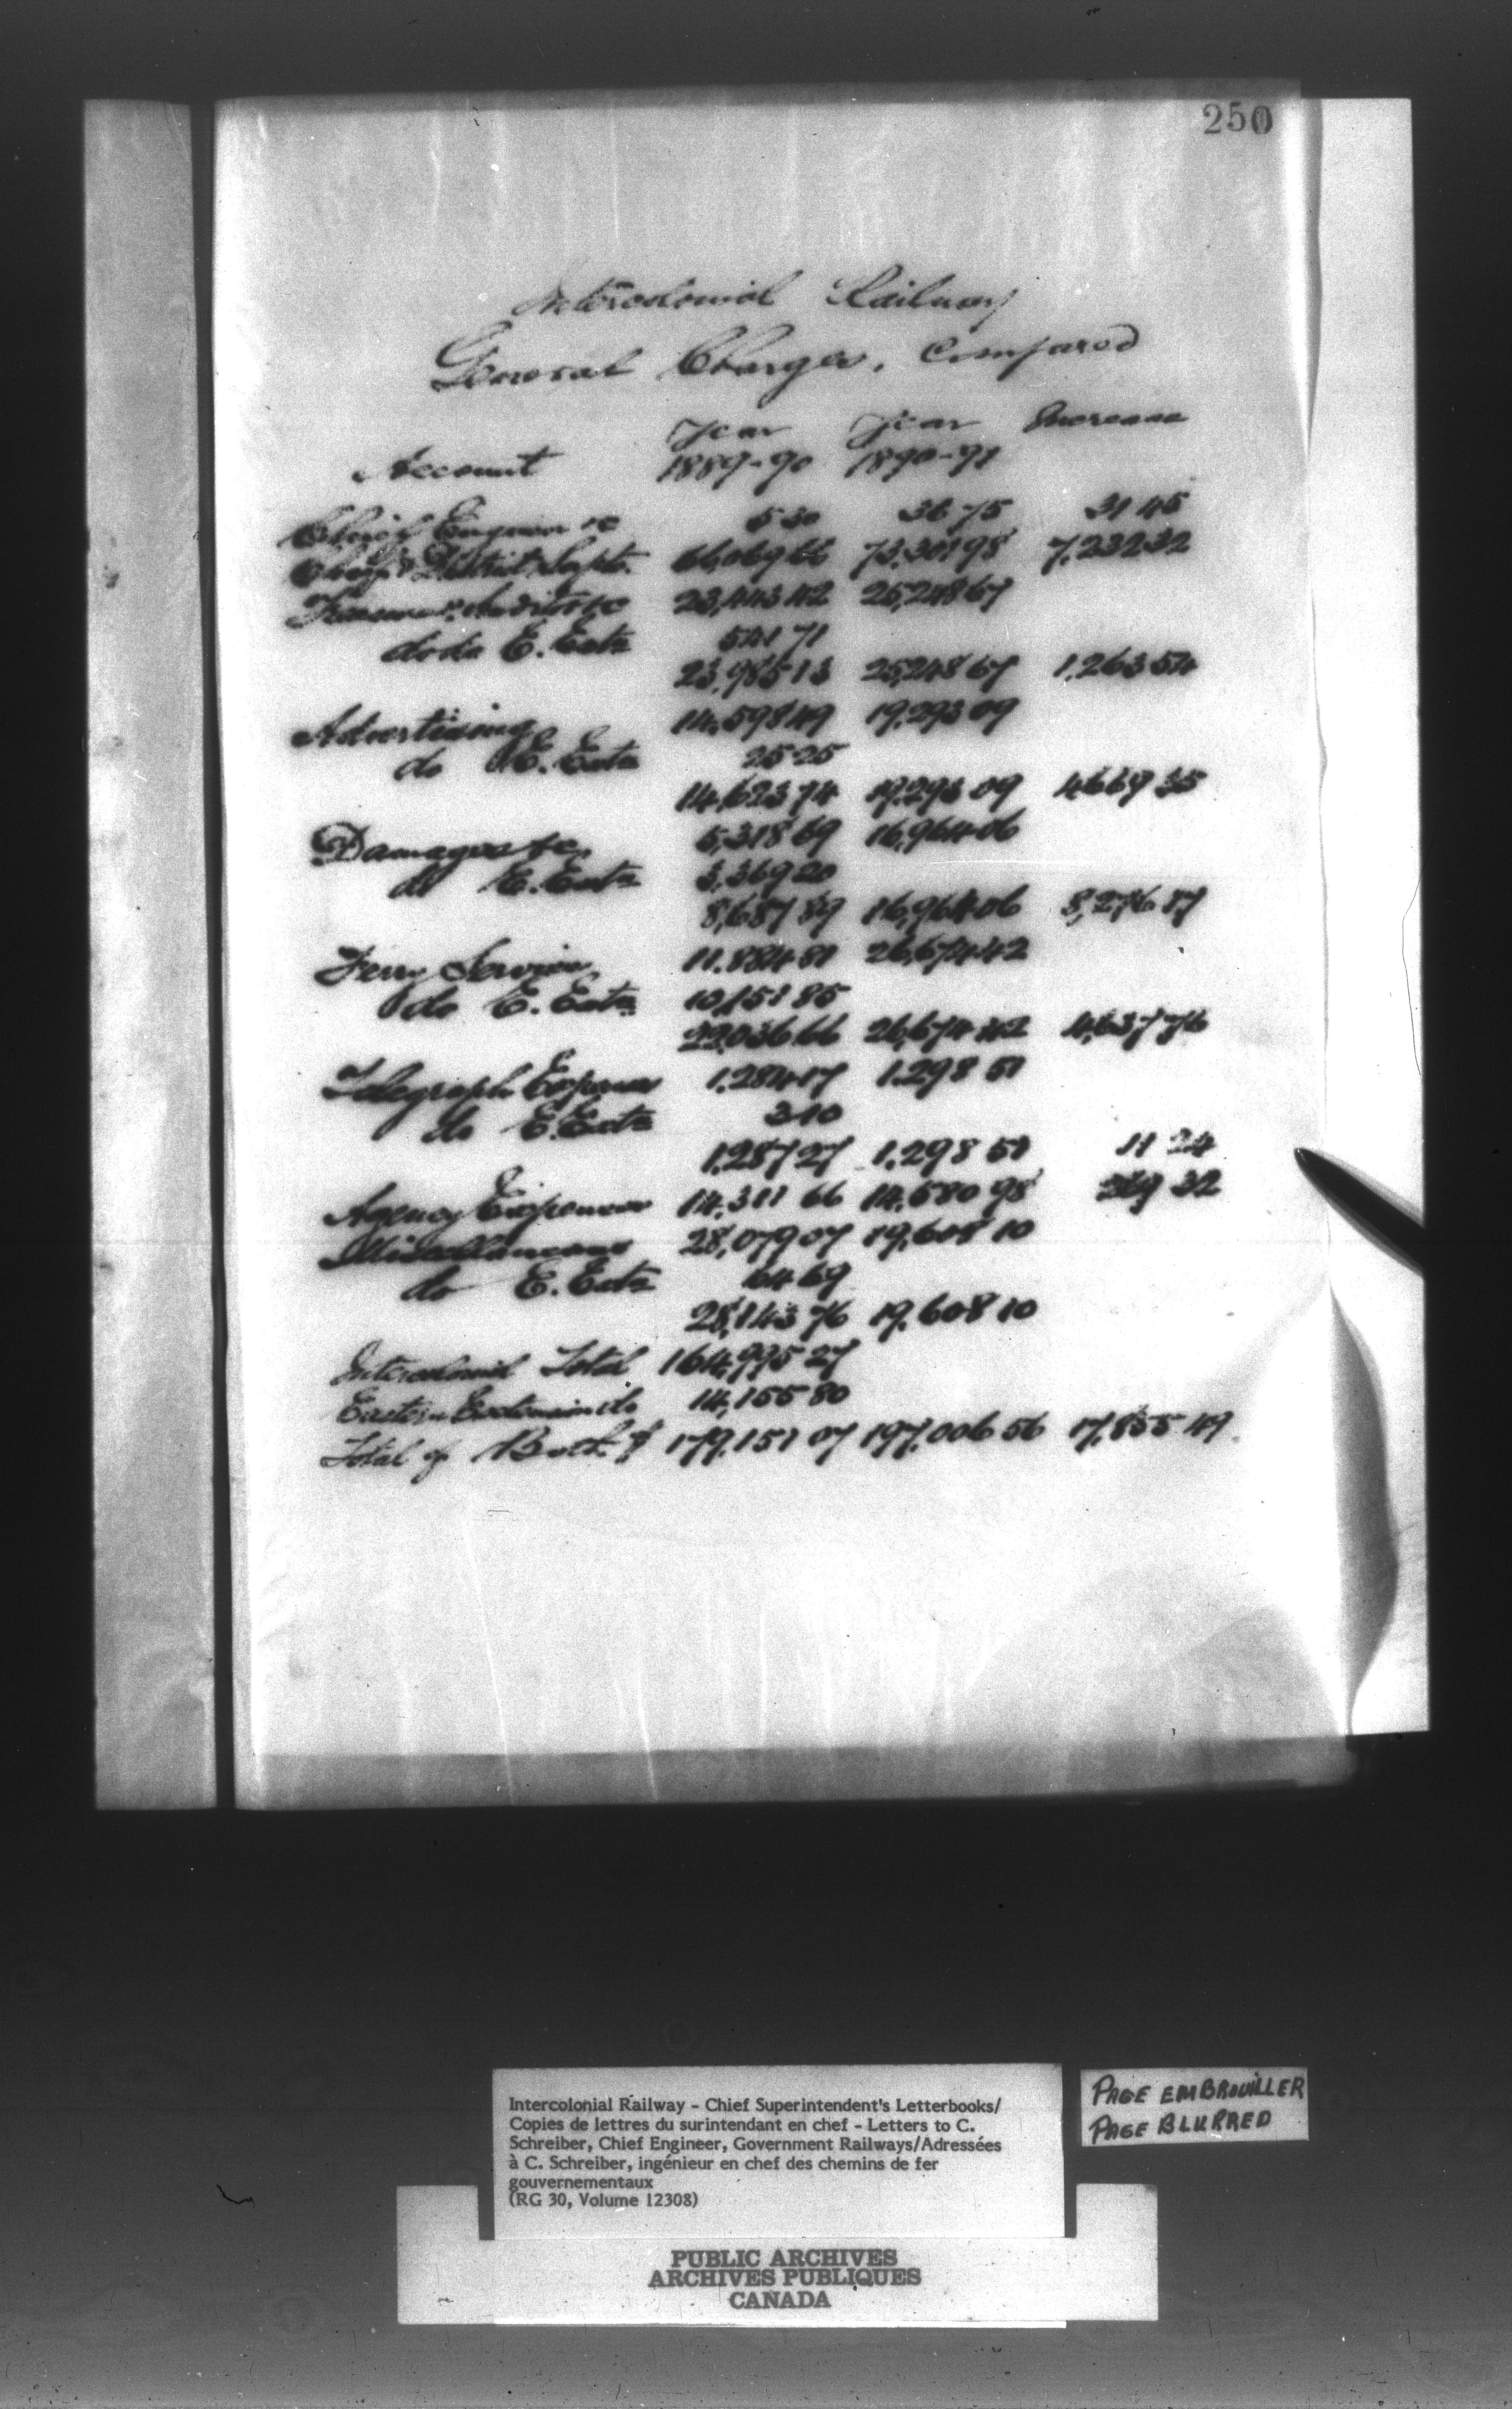 250
Intercolonial Railway
General Charges, Compared
Year Year Increase
Account 1889-90 1890-91
Chief Engineer &c 5 30 36 75 31 45
Chief & District Supts. 66,069 66 73,301 98 7,232 32
Auditor &c 23,443 42 25,248 67
do do E. Extn 541 71
23,985 13 25,248 67 1,263 54
Advertising 14,598 49 19,293 09
do E. Extn 25 25
14,623 74 19,293 09 4,669 35
Damages &c. 5,318 69 16,964 06
do E. Extn 3,369 20
8,687 89 16,964 06 8,276 17
Ferry Service 11,884 81 26,674 42
do E. Extn 10,151 85
22,036 66 26,674 42 4,637 76
Telegraph Expenses 1,284 17 1,298 51
do E. Extn 3 10
1,287 27 1,298 51 11 24
Agency Expenses 14,311 66 14,580 98 269 32
Miscellaneous 28,079 07 19,608 10
do E. Extn 64 69
28,143 76 19,608 10
Intercolonial Total 164,995 27
Eastern Extension do 14,155 80
Total of Both $ 179,151 07 197,006 56 17,855 49
Intercolonial Railway - Chief Superintendent's Letterbooks/
Copies de lettres du surintendant en chef - Letters to C.
Schreiber, Chief Engineer, Government Railways/Adressées
à C. Schreiber, ingénieur en chef des chemins de fer
gouvernementaux
(RG 30, Volume 12308)
PAGE EMBROUILLER
PAGE BLURRED
PUBLIC ARCHIVES
ARCHIVES PUBLIQUES
CANADA